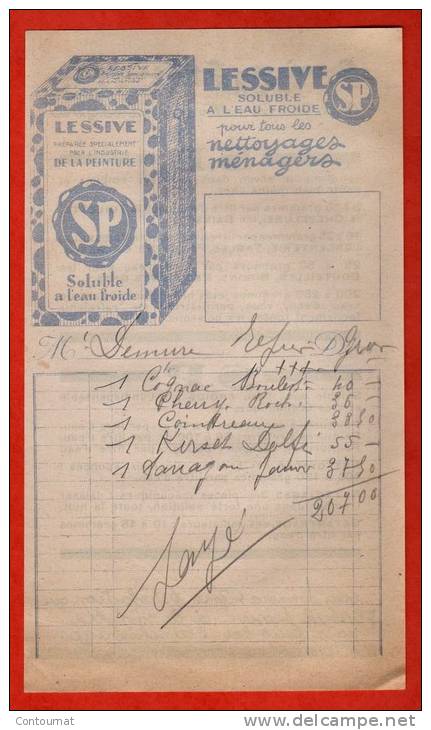 LESSIVE
LESSIVE
PRÉPARÉE SPÉCIALEMENT
POUR L'INDUSTRIE
DE LA PEINTURE
SP
Soluble
a l'eau froide
LESSIVE
SOLUBLE
A L'EAU FROIDE
SP
pour tous les
nettoyages
ménagers
M Demure D
1 Cognac +++ 40 —
1 Cherry Roch 36 —
1 Cointreau 38.50
1 Kirsch Dolfi 55 —
1 37.50
207.00
Payé
Contoumat
www.delcampe.net